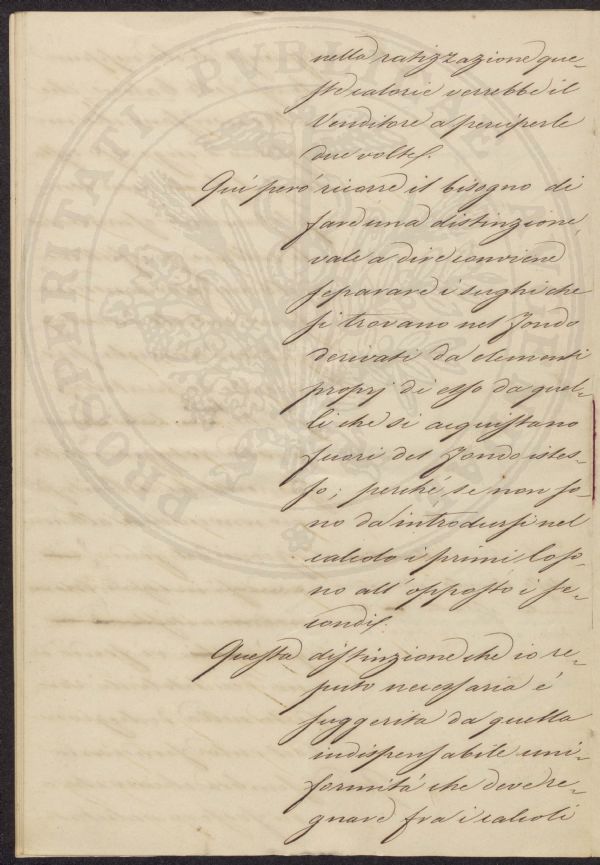 nella ratizzazione que-
ste calorie verrebbe il
Venditore a perciperle
due volte.
Quì però ricorre il bisogno di
fare una distinzione,
vale a dire conviene
separare i sughi che
si trovano nel fondo
derivati da elementi
proprj di esso da quel-
li che si acquistano
fuori del fondo istes-
so; perché, se non so-
no da introdursi nel
calcolo i primi, lo so-
no all'opposto i se-
condi.
Questa distinzione che io re-
puto necessaria è
suggerita da quella
indispensabile uni-
formità che deve re-
gnare fra i calcoli
PROSPERITATI PVBLICAE AVGENDAE